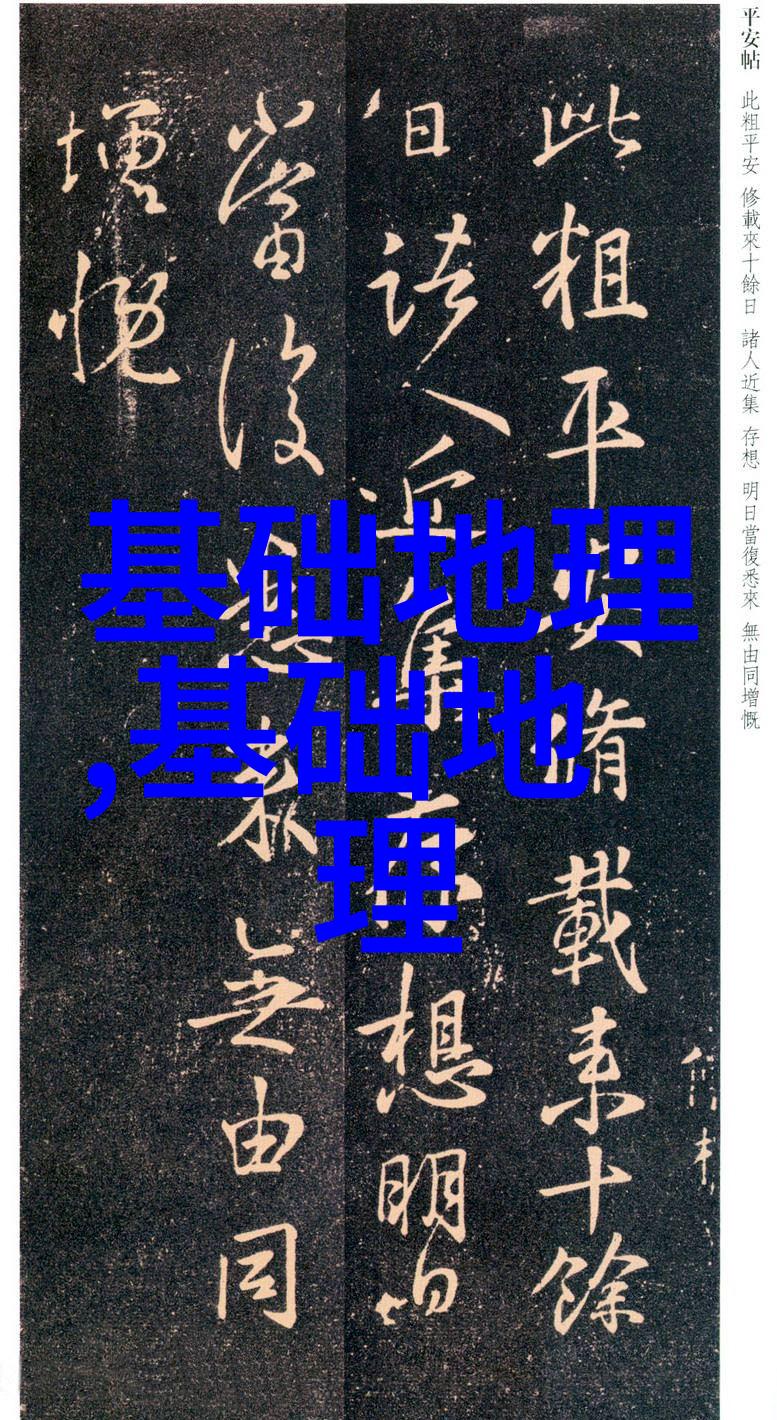 平安帖 此粗平安 修載來十餘日 諸人近集 存想 明日當復悉來 無由同增慨
此粗平安脩載来十餘
日諸人近集存想明日
當復悉來無由同
增慨
基础地理
,基础地
理